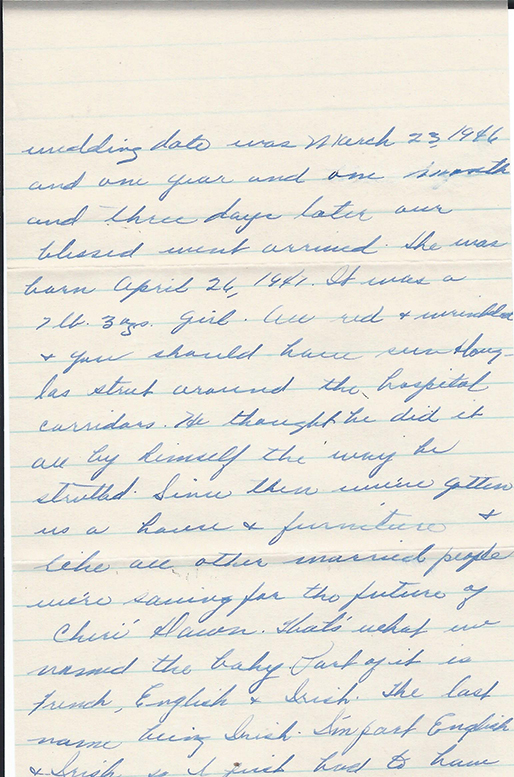 wedding date was March 23, 1946
and one year and one month
and three days later our
blessed event arrived. She was
born April 26, 1947. It was a
7 lb. 3 ozs. girl. All red & wrinkled
& you should have seen Doug-
las strut around the hospital
corridors. He thought he did it
all by himself the way he
strutted. Since then we've gotten
us a house & furniture &
like all other married people
we're saving for the future of
Cheri' Dawn. That's what we
named the baby. Part of it is
French, English & Irish. The last
name being Irish. I'm part English
& Irish so it just had to have